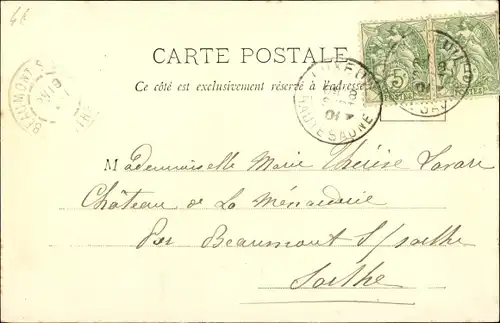 48
CARTE POSTALE
Ce côté est exclusivement réservé à l'adresse
BEAUMONT S
HAUTE SAONE
01
5
Mademoiselle Marie Thérèse Lavare
Château de La Ménaudrie
Par Beaumont S/sarthe
Sarthe